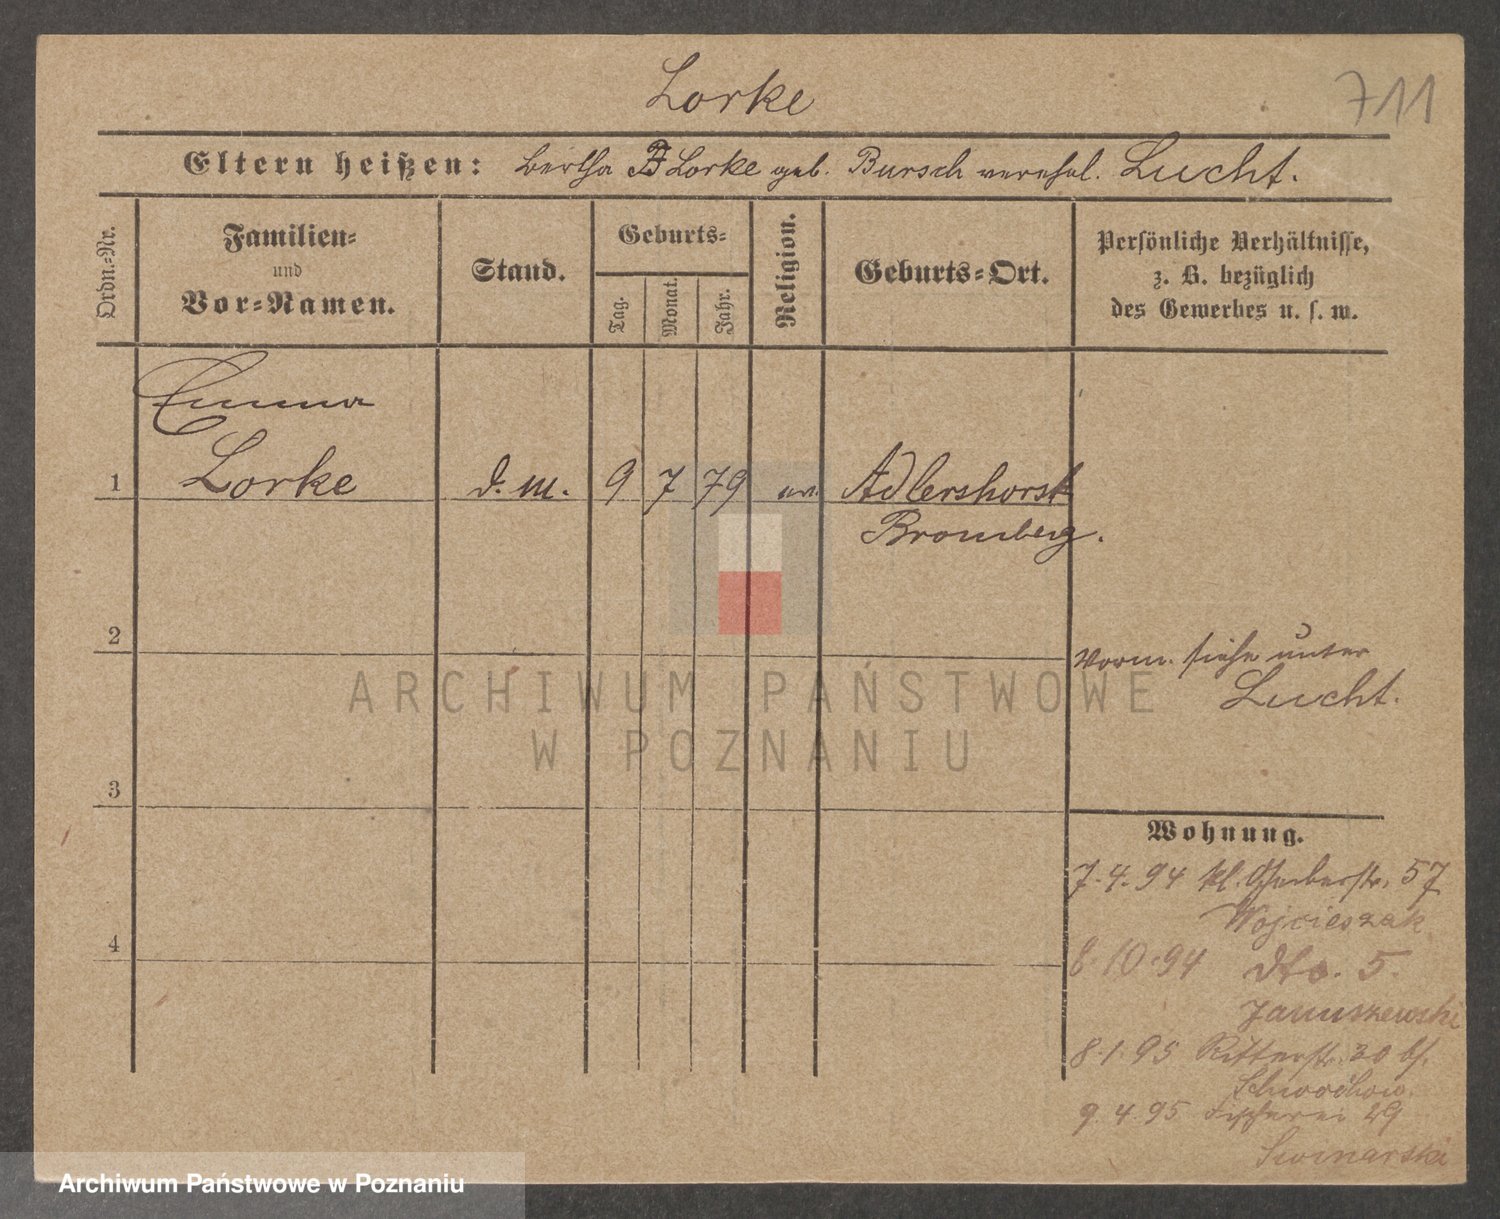 Lorke
711
Eltern heißen: Bertha Lorke geb. Bursch verehel. Lucht.
Ordn.=Nr.
Familien=
und
Vor=Namen.
Stand.
Geburts=
Tag.
Monat.
Jahr.
Religion.
Geburts=Ort.
Persönliche Verhältnisse,
z. B. bezüglich
des Gewerbes u. s. w.
Emma
1 Lorke d. m. 9 7 79 ev. Adlershorst
Bromberg.
2
Vorm. siehe unter
Lucht.
3
Wohnung.
7.4.94 kl. Gerberstr. 57
Wojcieszak
4
8.10.94 dto. 5.
Januszewski
8.1.95 Ritterstr. 30 bf.
9.4.95 Fischerei 29
Swinarski
ARCHIWUM PAŃSTWOWE
W POZNANIU
Archiwum Państwowe w Poznaniu